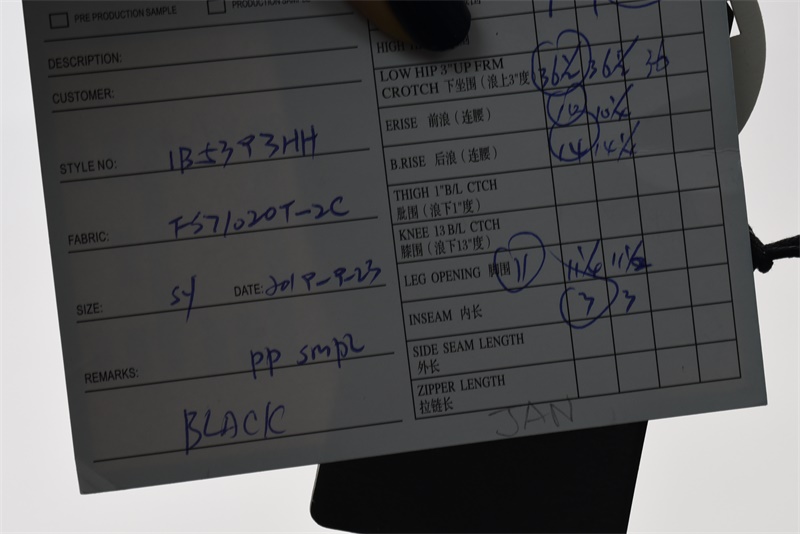 PRE PRODUCTION SAMPLE
PRODUCTION SAMPLE
DESCRIPTION:
CUSTOMER:
STYLE NO: 1B53993HH
FABRIC: FS71020T-2C
SIZE: SY DATE: 2019-9-23
REMARKS: PP smpl
BLACK
HIGH
LOW HIP 3"UP FRM
CROTCH 下坐围（浪上3"度 36½ 36½ 36
ERISE 前浪（连腰） 10 10¼
B.RISE 后浪（连腰） 14 14¼
THIGH 1"B/L CTCH
脾围（浪下1"度）
KNEE 13 B/L CTCH
膝围（浪下13"度）
LEG OPENING 脚围 11 11¼ 11½
INSEAM 内长 3 3
SIDE SEAM LENGTH
外长
ZIPPER LENGTH
拉链长
JAN